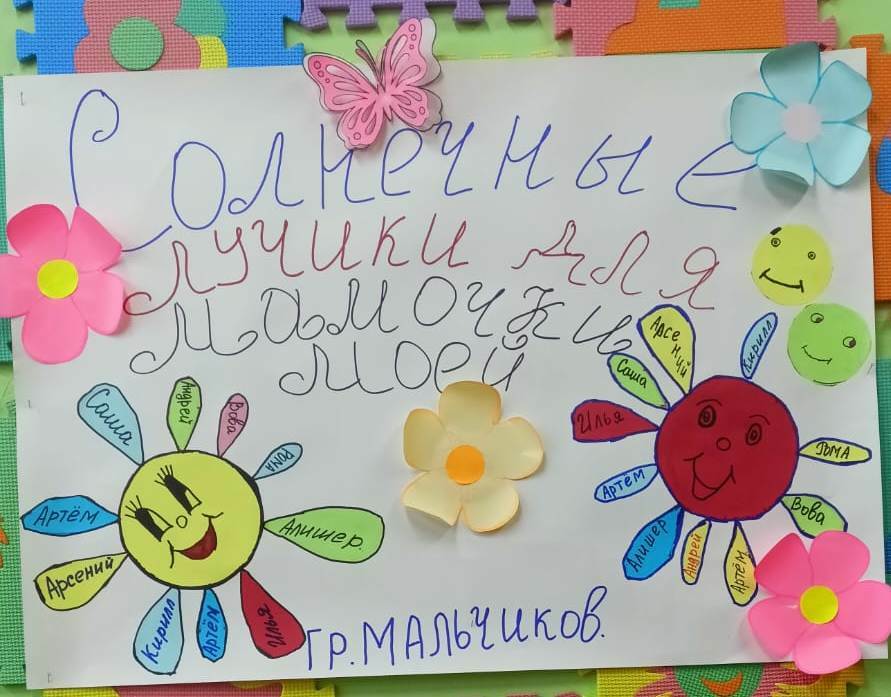 Солнечные
лучики для
мамочки
моей
Саша
Андрей
Вова
Рома
Артём
Алишер.
Арсений
Кирилл
Артём
Илья
Арсений
Кирилл
Саша
Илья
Рома
Артём
Вова
Алишер
Андрей
Артём
гр. МАЛЬЧИКОВ.